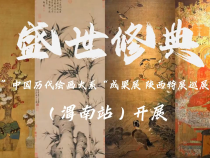 盛世修典
"中国历代绘画大系"成果展 陕西特展巡展
（渭南站）开展